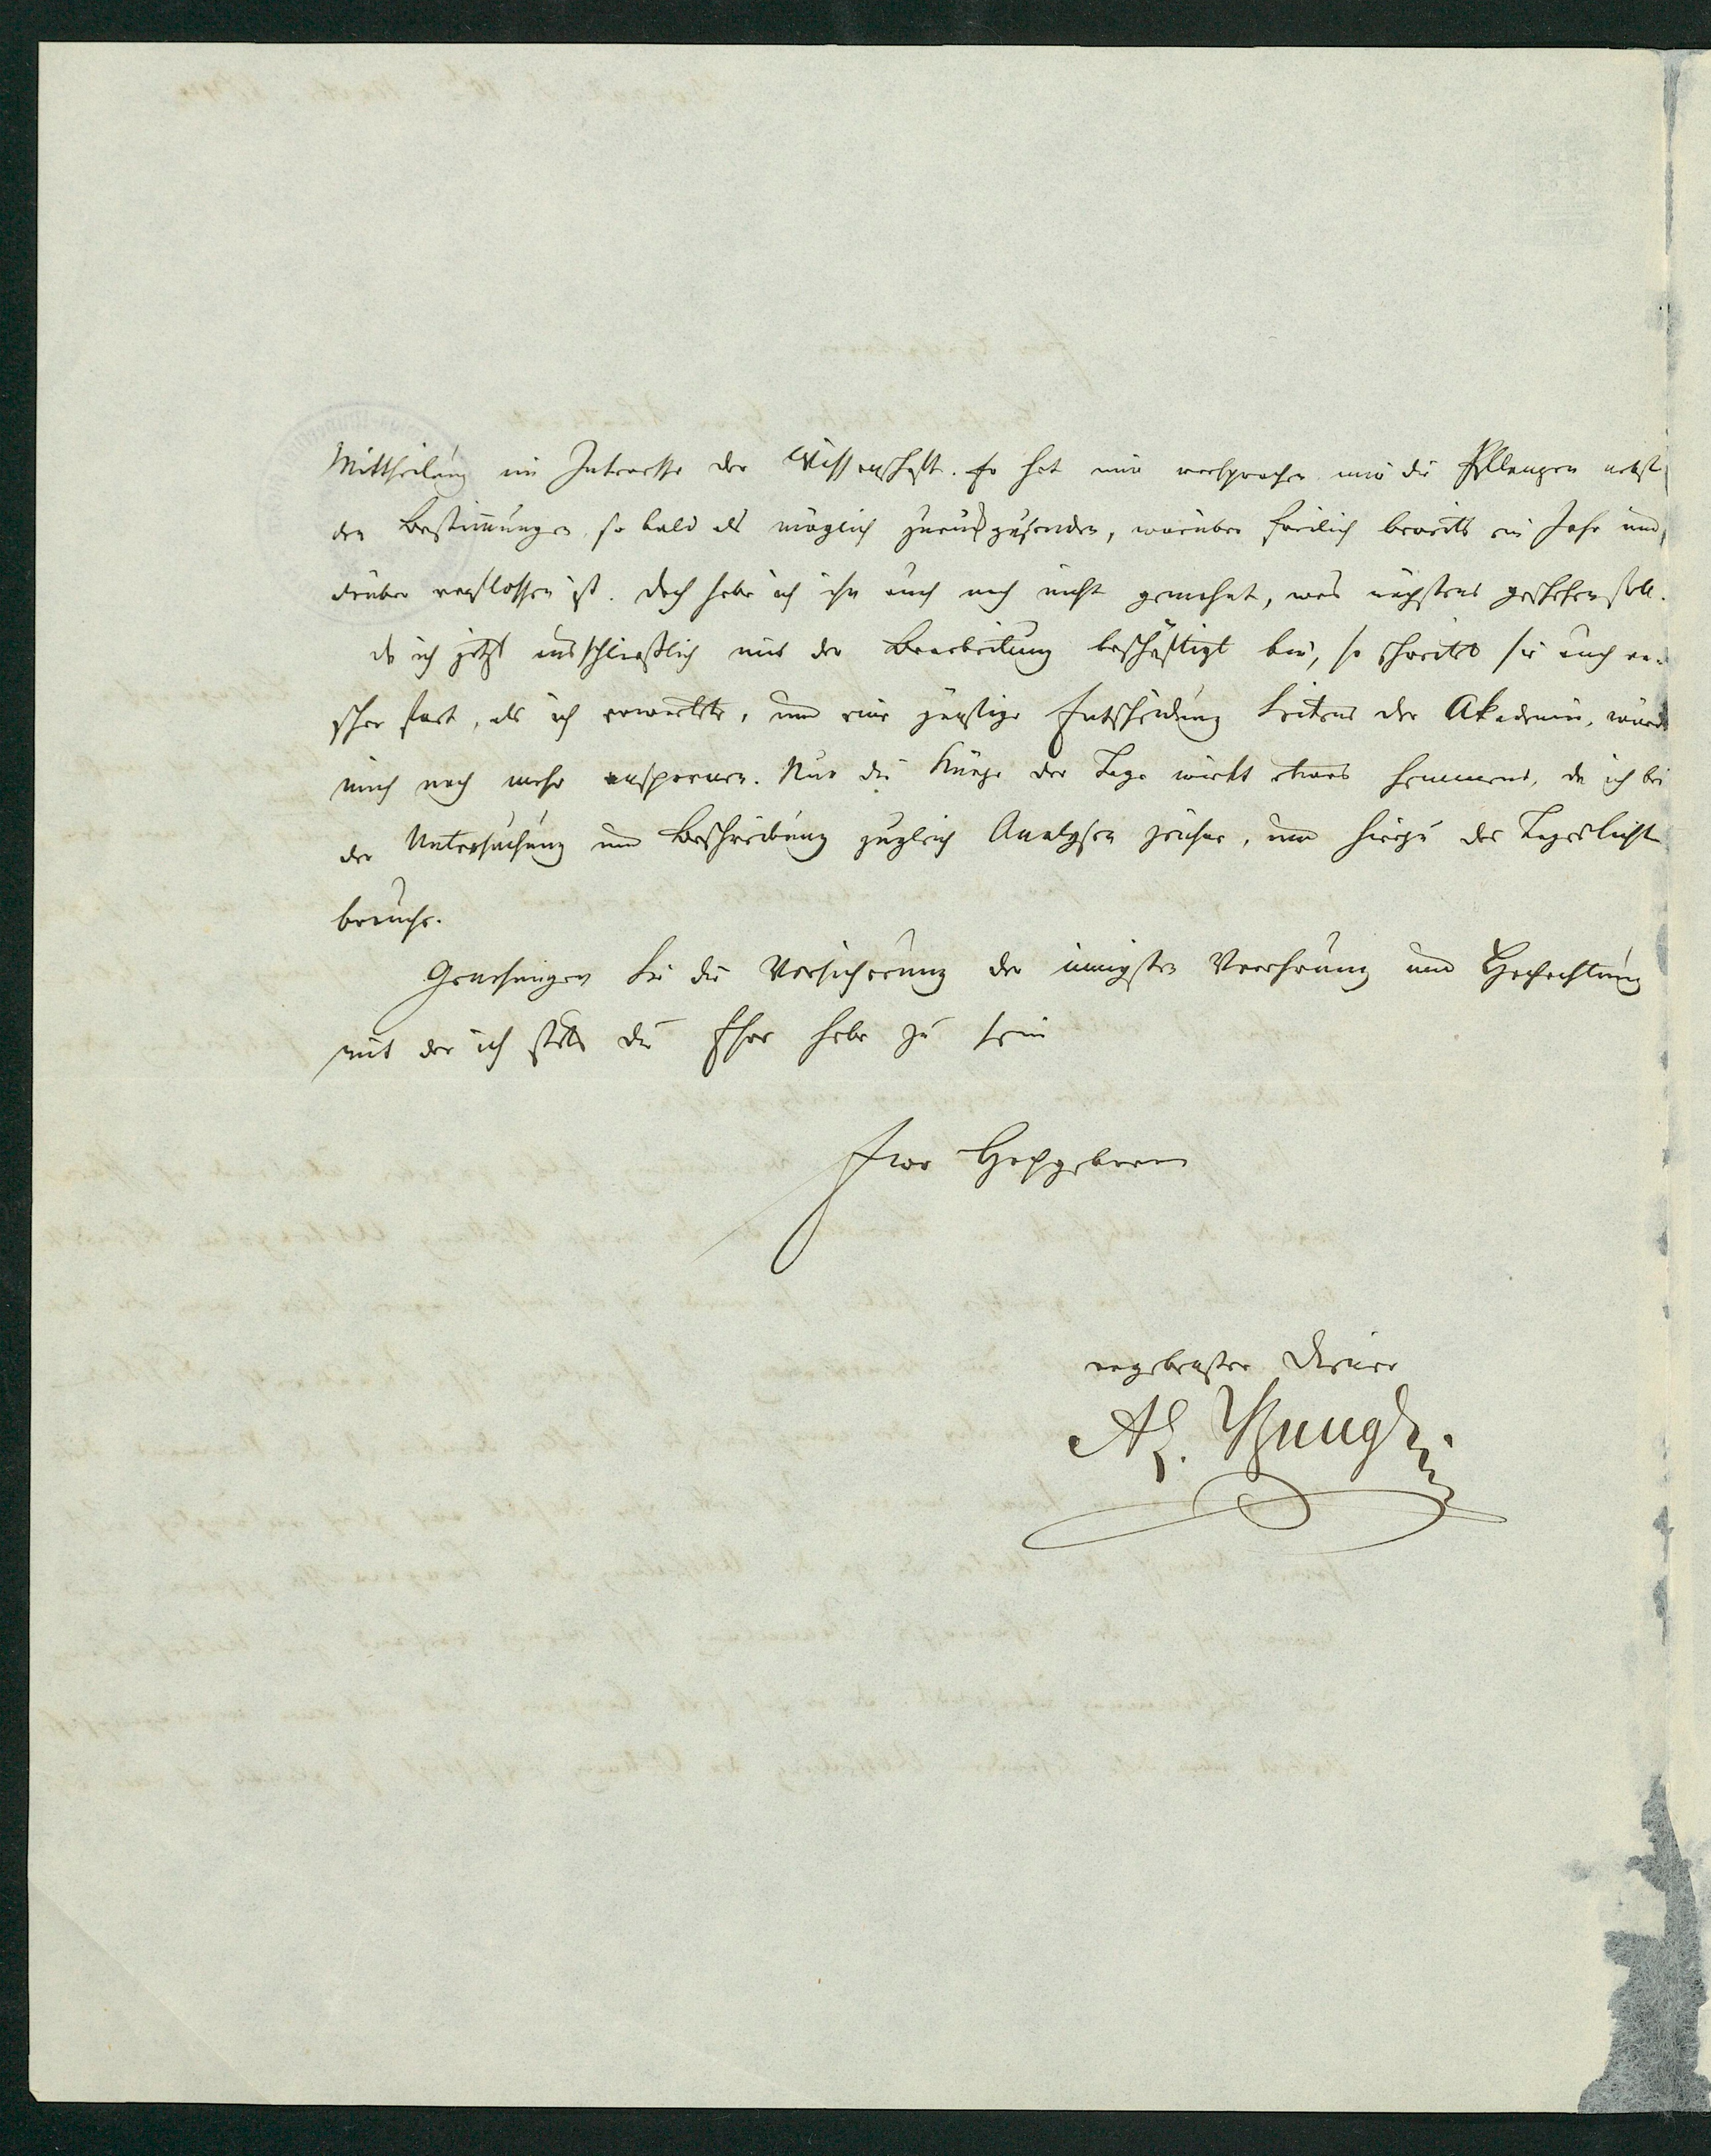 Mittheilung im Interesse der Wissenschaft. Er hat mir versprochen mir die Pflanzen nebst
den Bestim̅ungen so bald als möglich zurückzusenden, worüber freilich bereits ein Jahr und
drüber verflossen ist. Doch habe ich ihn auch noch nicht gemahnt, was nächstens geschehen soll.
Da ich jetzt ausschließlich mit der Bearbeitung beschäftigt bin, so schreitet sie auch ra-
scher fort, als ich erwartete, und eine günstige Entscheidung Seitens der Akademie, würde
mich noch mehr anspornen. Nur die Kürze der Tage wirkt etwas hemmend, da ich bei
der Untersuchung und Beschreibung zugleich Analysen zeichne, und hierzu des Tageslichts
brauche.
Genehmigen Sie die Versicherung der innigsten Verehrung und Hochachtung
mit der ich stets die Ehre habe zu sein
Ewr Hochgeboren
ergebenster Diener
Al. Bunge